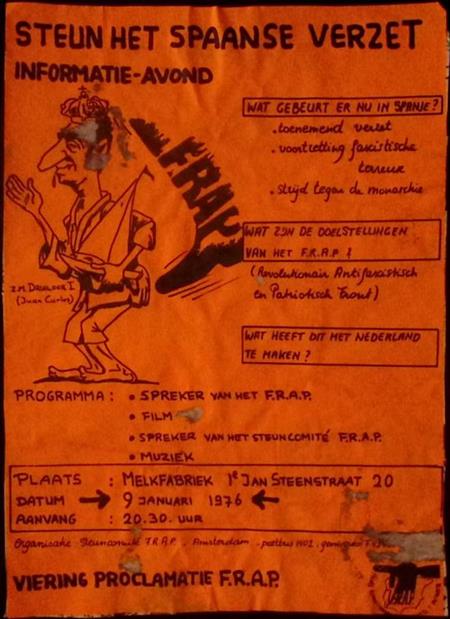 STEUN HET SPAANSE VERZET
INFORMATIE-AVOND
WAT GEBEURT ER NU IN SPANJE?
. toenemend verzet
. voortzetting fascistische
terreur
. strijd tegen de monarchie
F.R.A.P.
WAT ZIJN DE DOELSTELLINGEN
VAN HET F.R.A.P?
(Revolutionair Antifascistisch
en Patriotisch Front)
Z.M.
(Juan Carlos)
WAT HEEFT DIT MET NEDERLAND
TE MAKEN?
PROGRAMMA: • SPREKER VAN HET F.R.A.P.
• FILM
• SPREKER VAN HET STEUNCOMITÉ F.R.A.P.
• MUZIEK
PLAATS : MELKFABRIEK 1e JAN STEENSTRAAT 20
DATUM → 9 JANUARI 1976 ←
AANVANG : 20.30. UUR
Organisatie Steuncomité F.R.A.P. Amsterdam
VIERING PROCLAMATIE F.R.A.P.